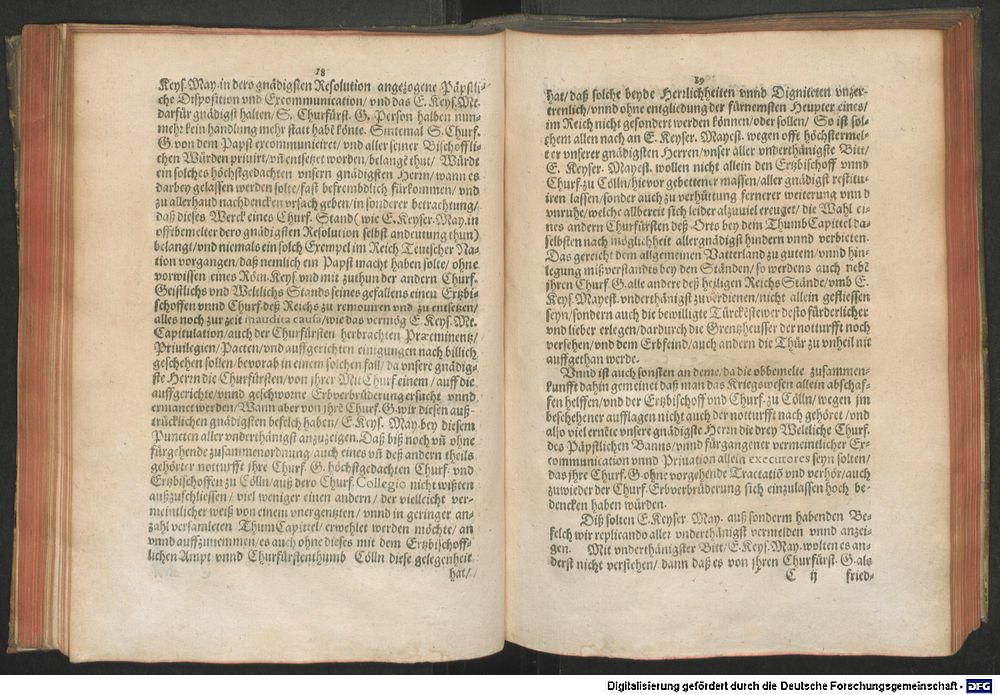 18
Keys. May. in dero gnädigsten Resolution angezogene Päpstli-
che Disposition vnd Excommunication/ vnd das E. Keys. Mt.
darfür gnädigst halten/ S. Churfürst. G. Person halben nun-
mehr kein handlung mehr statt habē könte. Sintemal S. Churf.
G. von dem Papst excommuniciret/ vnd aller seiner Bischoffli-
chen Würden priuirt/ vñ entsetzet worden/ belangē thut/ Würdt
ein solches höchstgedachten vnsern gnädigsten Herrn/ wann es
darbey gelassen werden solte/ fast befrembdlich fürkommen/ vnd
zu allerhand nachdencken vrsach geben/ in sonderer betrachtung/
daß dieses Werck eines Churf. Stand (wie E. Keyser. May. in
offtbemelter dero gnädigsten Resolution selbst andeutung thun)
belangt/ vnd niemals ein solch Exempel im Reich Teutscher Na-
tion vorgangen/ daß nemlich ein Papst macht haben solte/ ohne
vorwissen eines Röm. Keys. vnd mit zuthun der andern Churf.
Geistlichs vnd Weltlichs Stands seines gefallens einen Ertzbi-
schoffen vnnd Churf. deß Reichs zu remouiren vnd zu entsetzen/
alles noch zur zeit inaudita causa/ wie das vermög E. Keys. Mt.
Capitulation/ auch der Churfürsten herbrachten Præeminentz/
Priuilegien/ Pacten/ vnd auffgerichten einigungen nach billich
geschehen sollen/ bevorab in einem solchen fall/ da vnsere gnädig-
ste Herrn die Churfürsten/ von jhrer Mit Churf einem/ auff die
auffgerichte/ vnnd geschworne Erbverbrüderung ersucht vnnd
ermanet werden/ Wann aber von jhrē Churf. G. wir diesen auß-
trücklichen gnädigsten befelch haben/ E. Keys. May. bey diesem
Puncten aller vnderthänigst anzuzeigen. Daß biß noch vñ ohne
fürgehende zusammenordnung/ auch eines vñ deß andern theils
gehörter notturfft jhre Churf. G. höchstgedachten Churf. vnd
Ertzbischoffen zu Cölln/ auß dero Churf. Collegio nicht wißten
außzuschliessen/ viel weniger einen andern/ der vielleicht ver-
meintlicher weiß von einem vnergentzten/ vnnd in geringer an-
zahl versamleten Thum Capittel/ erwehlet werden möchte/ an
vnnd auffzunemmen/ es auch ohne dieses mit dem Ertzbischoff-
lichen Ampt vnnd Churfürstenthumb Cölln diese gelegenheit
hat/
19
hat/ daß solche beyde Herrlichheiten vnnd Digniteten vnzer-
trenlich/ vnnd ohne entgliedung der fürnemsten Heupter eines/
im Reich nicht gesondert werden können/ oder sollen/ So ist sol-
chem allen nach an E. Keyser. Mayest. wegen offt höchstermel-
ter vnserer gnädigsten Herren/ vnser aller vnderthänigste Bitt/
E. Keyser. Mayest. wollen nicht allein den Ertzbischoff vnnd
Churf. zu Cölln/ hievor gebettener massen/ aller gnädigst restitu-
iren lassen/ sonder auch zu verhüttung fernerer weiterung vnnd
vnruhe/ welche allbereit sich leider alzuuiel ereuget/ die Wahl ei-
nes andern Churfürsten deß Orts bey dem Thumb Capittel da-
selbsten nach möglichheit allergnädigst hindern vnnd verbieten.
Das gereicht dem allgemeinen Vatterland zu gutem/ vnnd hin-
legung mißverstandts bey den Ständen/ so werdens auch nebē
jhren Churf. G. alle andere deß heiligen Reichs Stände/ vmb E.
Keys. Mayest. vnderthänigst zuverdienen/ nicht allein geflissen
seyn/ sondern auch die bewilligte Türckestewer desto fürderlicher
vnd lieber erlegen/ dardurch die Grentzheusser der notturfft noch
versehen/ vnd dem Erbfeind/ auch andern die Thür zu vnheil nit
auffgethan werde.
Vnnd ist auch sonsten an deme/ da die obbemelte zusammen-
kunfft dahin gemeinet daß man das Kriegswesen allein abschaf-
fen helffen/ vnd der Ertzbischoff vnd Churf. zu Cölln/ wegen jm
beschehener aufflagen nicht auch der notturfft nach gehöret/ vnd
also viel ernēte vnsere gnädigste Herrn die drey Weltliche Churf.
des Päpstlichen Banns/ vnnd fürgangener vermeintlicher Ex-
communication vnnd Priuation allein executores seyn solten/
das jhre Churf. G. ohne vorgehende Tractatiō vnd verhör/ auch
zuwieder der Churf. Erbverbrüderung sich einzulassen hoch be-
dencken haben würden.
Diß solten E. Keyser. May. auß sonderm habenden Be-
felch wir replicando aller vnderthänigst vermelden vnnd anzei-
gen. Mit vnderthänigster Bitt/ E. Keys. May. wolten es an-
derst nicht verstehen/ dann daß es von jhren Churfürst. G. als
C ij fried-
Digitalisierung gefördert durch die Deutsche Forschungsgemeinschaft - DFG